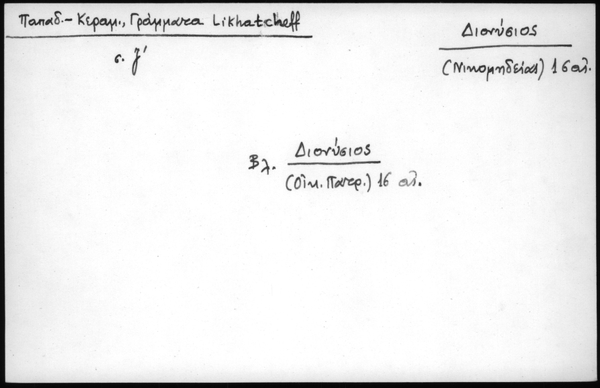 Παπαδ.-Κεραμ., Γράμματα Likhatcheff
σ. ζ'
Διονύσιος
(Νικομηδείας) 16 αἰ.
Βλ. Διονύσιος
(Οἰκ. Πατρ.) 16 αἰ.